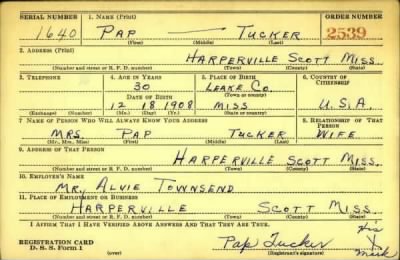 SERIAL NUMBER 1. NAME (Print) ORDER NUMBER
1640 PAP — TUCKER 2539
(First) (Middle) (Last)
2. ADDRESS (Print)
HARPERVILLE SCOTT MISS.
(Number and street or R. F. D. number) (Town) (County) (State)
3. TELEPHONE 4. AGE IN YEARS 5. PLACE OF BIRTH 6. COUNTRY OF CITIZENSHIP
30 LEAKE CO.
DATE OF BIRTH (Town or county)
12 18 1908 MISS U.S.A.
(Exchange) (Number) (Mo.) (Day) (Yr.) (State or country)
7. NAME OF PERSON WHO WILL ALWAYS KNOW YOUR ADDRESS 8. RELATIONSHIP OF THAT PERSON
MRS. PAP TUCKER WIFE
(Mr., Mrs., Miss) (First) (Middle) (Last)
9. ADDRESS OF THAT PERSON
HARPERVILLE SCOTT MISS.
(Number and street or R. F. D. number) (Town) (County) (State)
10. EMPLOYER'S NAME
MR. ALVIE TOWNSEND
11. PLACE OF EMPLOYMENT OR BUSINESS
HARPERVILLE SCOTT MISS.
(Number and street or R. F. D. number) (Town) (County) (State)
I AFFIRM THAT I HAVE VERIFIED ABOVE ANSWERS AND THAT THEY ARE TRUE.
REGISTRATION CARD his
D. S. S. Form 1 (over) Pap Tucker X
(Registrant's signature) Mark